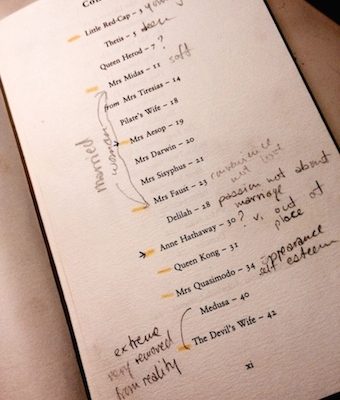 Little Red-Cap – 3
Thetis – 5 teen
Queen Herod – 7 ?
Mrs Midas – 11 soft
from Mrs Tiresias – 14
Pilate's Wife – 18
Mrs Aesop – 19
Mrs Darwin – 20
Mrs Sisyphus – 21
Mrs Faust – 23 convenience not love
Delilah – 28 passion not about marriage
Anne Hathaway – 30 ? v. out of place
Queen Kong – 31
Mrs Quasimodo – 34 appearance self esteem
Medusa – 40
The Devil's Wife – 42
married women
extreme
very removed
from reality
xi